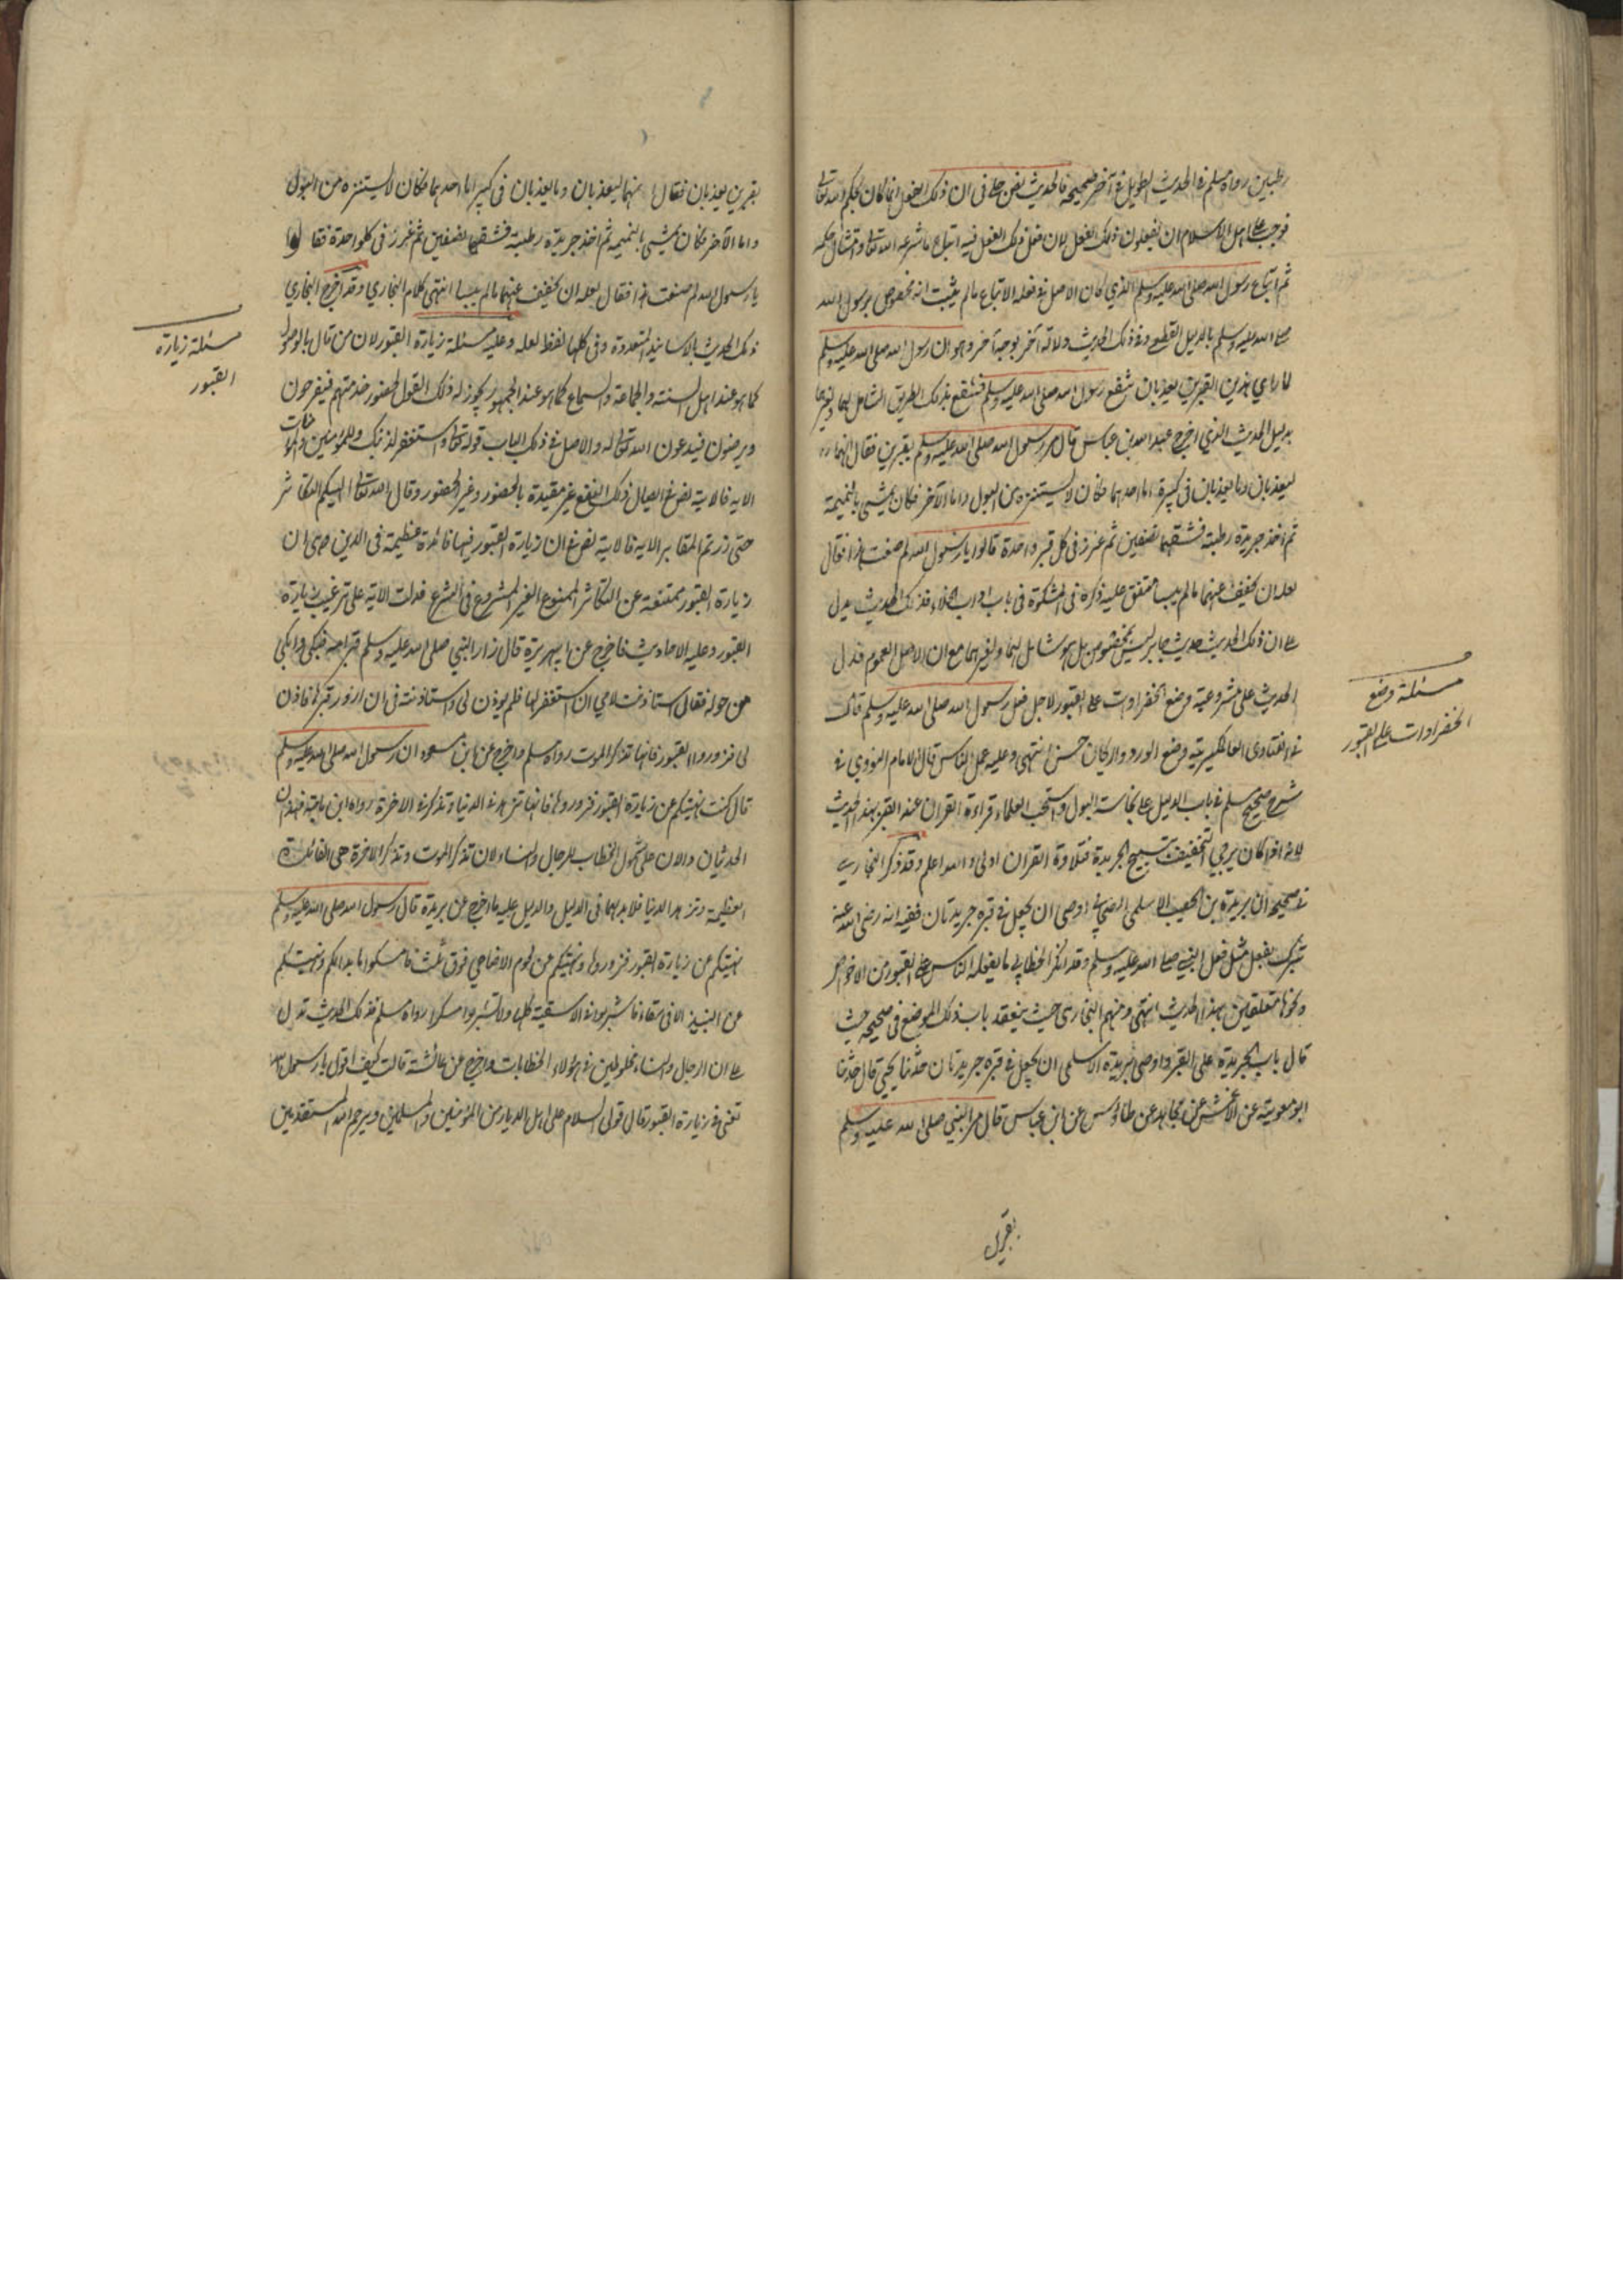 رطبين رواه مسلم في الحديث الطويل في آخر صحيحه فالحديث نص على في ان ذلك الفعل انما كان بحكم الله تعالى
فوجب على اهل الاسلام ان يفعلون ذلك الفعل لان فعل ذلك الفعل فيه اتباع ما شرعه الله تعالى وامتثال حكمه
ثم اتباع رسول الله صلى الله عليه وسلم الذي كان الاصل في فعله الاتباع ما لم يثبت انه مخصوص برسول الله
صلى الله عليه وسلم بالدليل القطعي وفي ذلك الحديث دلالة آخر بوجه آخر وهو ان رسول الله صلى الله عليه وسلم
لما راي هذين القبرين يعذبان شفع رسول الله صلى الله عليه وسلم فشفع بذلك الطريق الشامل لهما ولغيرهما
بدليل الحديث الذي اخرج عبد الله بن عباس قال مر رسول الله صلى الله عليه وسلم بقبرين فقال انهما
ليعذبان وما يعذبان في كبيرة اما احدهما فكان لا يستنزه من البول واما الآخر فكان يمشي بالنميمة
ثم اخذ جريدة رطبة فشقها نصفين ثم غرز في كل قبر واحدة قالوا يا رسول الله لم صنعت هذا فقال
لعله ان يخفف عنهما ما لم ييبسا متفق عليه ذكره في المشكوة في باب اداب الخلاء فذلك الحديث يدل
على ان ذلك الحديث حديث جابر ليس بمخصوص بل هو شامل لهما ولغيرهما مع ان الاصل العموم فدل
الحديث على مشروعية وضع الخضراوات على القبور لاجل فعل رسول الله صلى الله عليه وسلم قال
في الفتاوى العالمكيرية وضع الورد والريحان حسن انتهى وعليه عمل الناس قال الامام النووي في
شرح صحيح مسلم في باب الدليل على نجاسة البول واستحب العلماء قراءة القران عند القبر بهذا الحديث
لانه اذا كان يرجى التخفيف بتسبيح الجريدة فتلاوة القران اولى والله اعلم وقد ذكر البخاري
في صحيحه ان بريدة بن الحصيب الاسلمي الصحابي اوصى ان يجعل في قبره جريدتان ففيه انه رضي الله عنه
تبرك بفعل مثل فعل النبي صلى الله عليه وسلم وقد انكر الخطابي ما يفعله الناس على القبور من الاخواص
ونحوها متعلقين بهذا الحديث انتهى ومنهم البخاري حيث ينعقد باب ذلك الموضع في صحيحه حيث
قال باب الجريدة على القبر واوصى بريدة الاسلمي ان يجعل في قبره جريدتان حدثنا يحيى قال حدثنا
ابو معوية عن الاعمش عن مجاهد عن طاوس عن ابن عباس قال مر النبي صلى الله عليه وسلم
مسئلة وضع
الخضراوات على القبور
بقبرين يعذبان فقال انهما ليعذبان وما يعذبان في كبير اما احدهما فكان لا يستنزه من البول
واما الآخر فكان يمشي بالنميمة ثم اخذ جريدة رطبة فشقها نصفين ثم غرز في كل واحدة فقالوا
يا رسول الله لم صنعت هذا فقال لعله ان يخفف عنهما ما لم ييبسا انتهى كلام البخاري وقد اخرج البخاري
ذلك الحديث بالاسانيد المتعددة وفي كلها لفظ لعله وعليه مسئلة زيارة القبور لان من قال بالوصول
كما هو عند اهل السنة والجماعة والسماع كما هو عند الجمهور يجوز له ذلك القول لحضور خدمتهم فيفرحون
ويرضون فيدعون الله تعالى له والاصل في ذلك الباب قوله تعالى واستغفر لذنبك وللمؤمنين والمؤمنات
الايه فالاية نص في ايصال ذلك النفع غير مقيدة بالحضور وغير الحضور وقال الله تعالى الهيكم التكاثر
حتى زرتم المقابر الايه فالاية نص في ان زيارة القبور فيها فائدة عظيمة في الدين حتى ان
زيارة القبور ممتنعة عن التكاثر الممنوع الغير المشروع في الشرع فدلت الاية على ترغيب زيارة
القبور وعليه الاحاديث فاخرج عن ابي هريرة قال زار النبي صلى الله عليه وسلم قبر امه فبكى وابكى
من حوله فقال استاذنت لامي ان استغفر لها فلم يوذن لي واستاذنته في ان ازور قبرها فاذن
لي فزوروا القبور فانها تذكر الموت رواه مسلم واخرج عن ابن مسعود ان رسول الله صلى الله عليه وسلم
قال كنت نهيتكم عن زيارة القبور فزوروها فانها تزهد في الدنيا وتذكر في الاخرة رواه ابن ماجة فهذان
الحديثان دالان على شمول الخطاب للرجال والنساء لان تذكر الموت وتذكر الاخرة هي الفائدة
العظيمة وتزهد الدنيا فلا بد لهما في الدليل والدليل عليه ما اخرج عن بريدة قال رسول الله صلى الله عليه وسلم
نهيتكم عن زيارة القبور فزوروها ونهيتكم عن لحوم الاضاحي فوق ثلث فامسكوا ما بدا لكم ونهيتكم
عن النبيذ الا في سقاء فاشربوا في الاسقية كلها ولا تشربوا مسكرا رواه مسلم فذلك الحديث تدل
على ان الرجال والنساء مخلوطين في هؤلاء الخطابات واخرج عن عائشة قالت كيف اقول يا رسول الله
تعني في زيارة القبور قال قولي السلام على اهل الديار من المؤمنين والمسلمين ويرحم الله المستقدمين
مسئلة زيارة
القبور